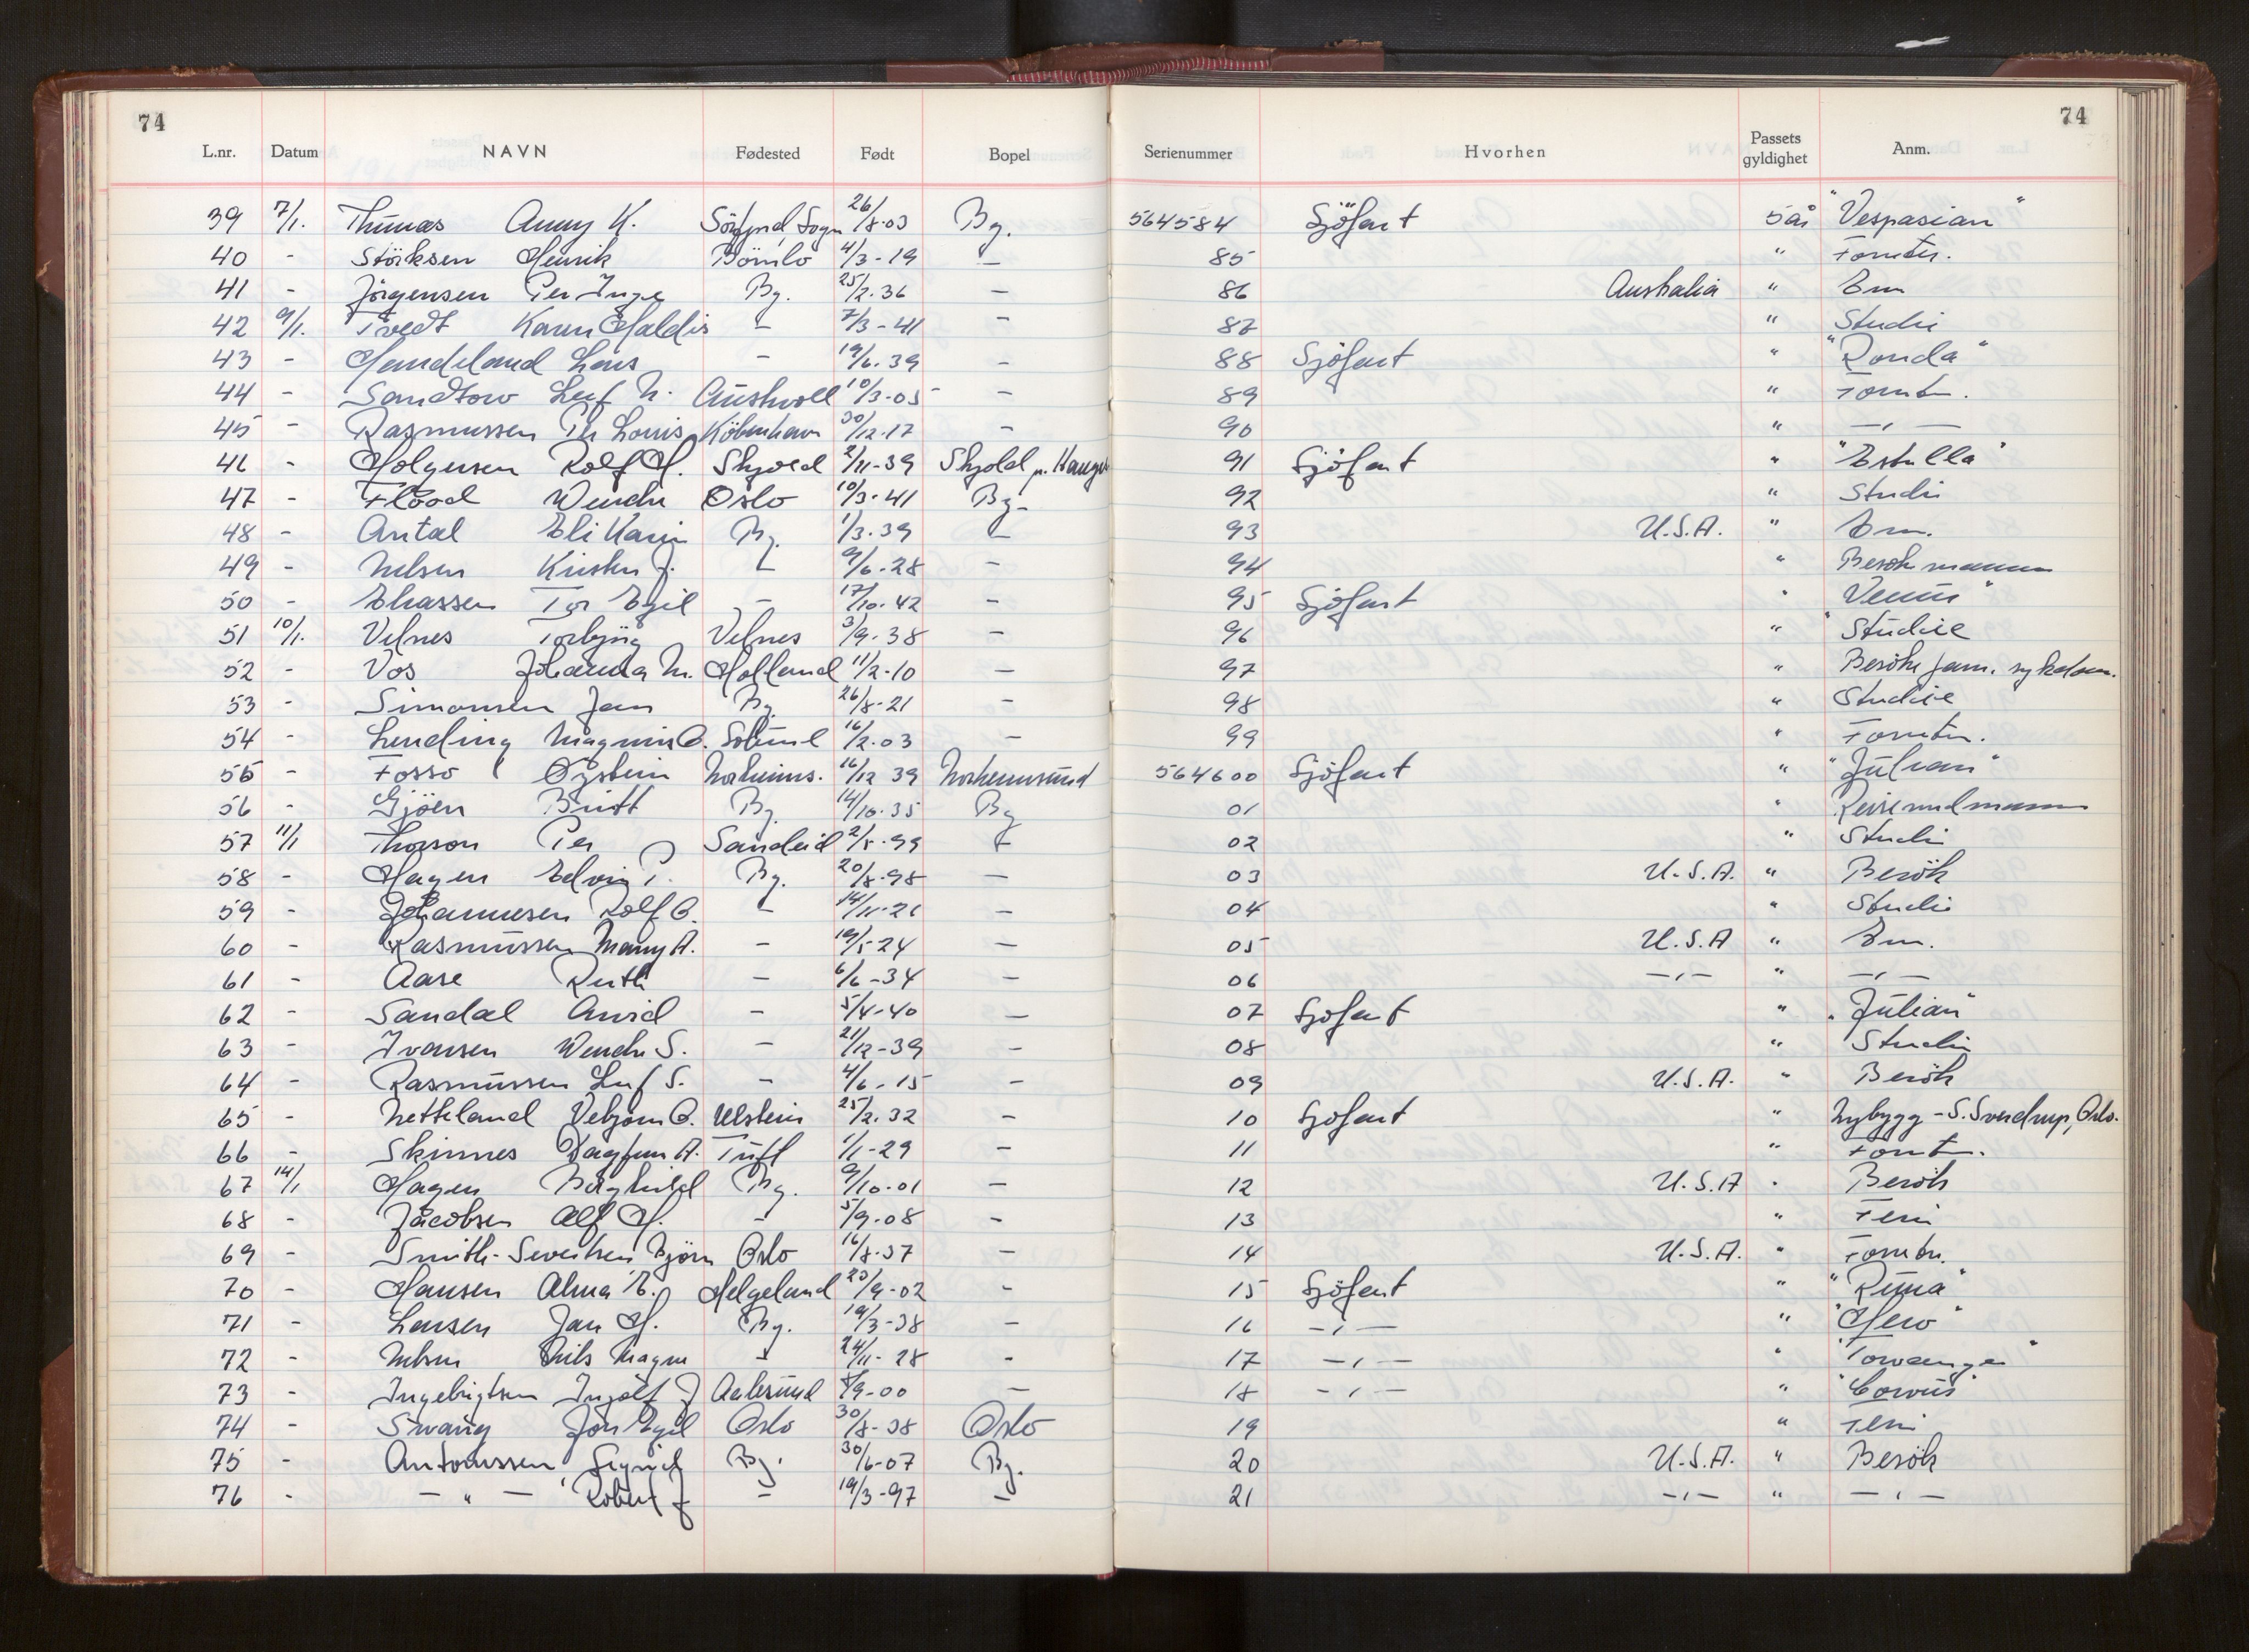 74 74
L.nr. Datum NAVN Fødested Født Bopel Serienummer Hvorhen Passets gyldighet Anm.
39 7/1. Thunas Anny K. Sogn 26/8-03 Bg. 564584 Sjöfart 5 år "Vespasian"
40 - Störksen Henrik Bömlo 4/3-19 — 85 " Forretn.
41 - Jörgensen Per Inge Bg. 25/2.36 — 86 Australia " Em
42 9/1. Tvedt Karin Haldis - 7/3-41 — 87 " Studie
43 - Handeland Lars - 19/6.39 — 88 Sjöfart " "Ronda"
44 - Sandtorv Leif N. Austevoll 10/3-05 — 89 " Forretn.
45 - Rasmussen Per Louis Köbenhavn 30/12.17 — 90 " —,—
46 - Holgersen Rolf H. Skjold 2/11-39 Skjold p. Hauges 91 Sjöfart " "Estrella"
47 - Flood Wenche Oslo 10/3-41 Bg. 92 " Studie
48 - Antal Eli Karin Bg. 1/3.39 — 93 U.S.A. " Em.
49 - Nilsen Kirsten J. — 9/6.28 — 94 " Besöke mannen
50 - Eliassen Tor Egil - 17/10.42 — 95 Sjöfart " "Venus"
51 10/1. Vefnes Torbjörg Vefnes 3/9-38 — 96 " Studie
52 - Vos Johanna M. Holland 11/2-10 — 97 " Besöke fam. sykdom.
53 - Simonsen Jan Bg. 26/8-21 — 98 " Studie
54 - Lending Magnus B. Solund 16/2.03 — 99 " Forretn.
55 - Fosso Øystein Norheims. 16/12 39 Norheimsund 564600 Sjöfart " "Julian"
56 - Gjöen Britt Bg. 14/10.35 Bg 01 " Reise med mannen
57 11/1 Thorson Per Sandeid 2/5-99 — 02 " Studie
58 - Hagen Edvin P. Bg. 20/8-98 — 03 U.S.A. " Besök
59 - Johannesen Rolf B. — 14/11-21 — 04 " Studie
60 - Rasmussen Mary A. - 19/5-24 — 05 U.S.A " Em.
61 - Aase Ruth - 6/6-34 — 06 —,— " —,—
62 - Sandal Arvid - 5/4-40 — 07 Sjöfart " "Julian"
63 - Ivarsen Wenche S. - 21/12-39 — 08 " Studie
64 - Rasmussen Leif S. - 4/6-15 — 09 U.S.A. " Besök
65 - Netteland Vebjörn B. Ulstein 25/2.32 — 10 Sjöfart " Nybygg - S. Sverdrup, Oslo.
66 - Skinnes Dagfinn A. Tuft 1/1-29 — 11 " Forretn.
67 14/1 Hagen Borghild Bg. 9/10-01 — 12 U.S.A " Besök
68 - Jacobsen Alf H. - 5/9-08 — 13 " Ferie
69 - Smith-Sivertsen Björn Oslo 16/8-37 — 14 U.S.A. " Forretn.
70 - Hansen Alma E. Helgeland 20/9-02 — 15 Sjöfart " "Runa"
71 - Larsen Jan H. Bg. 19/3-38 — 16 —,— " "Hero"
72 - Nilsen Nils Magne - 24/11-28 — 17 —,— "
73 - Ingebrigtsen Ingolf J Aalesund 8/9-00 — 18 —,— " "Corvus"
74 - Svaning Jon Egil Oslo 30/8-38 Oslo 19 " Ferie
75 - Antonssen Sigrid Bg. 30/6-07 Bg. 20 U.S.A. " Besök
76 - — " — Robert J - 19/3-97 — 21 —,— " —,—